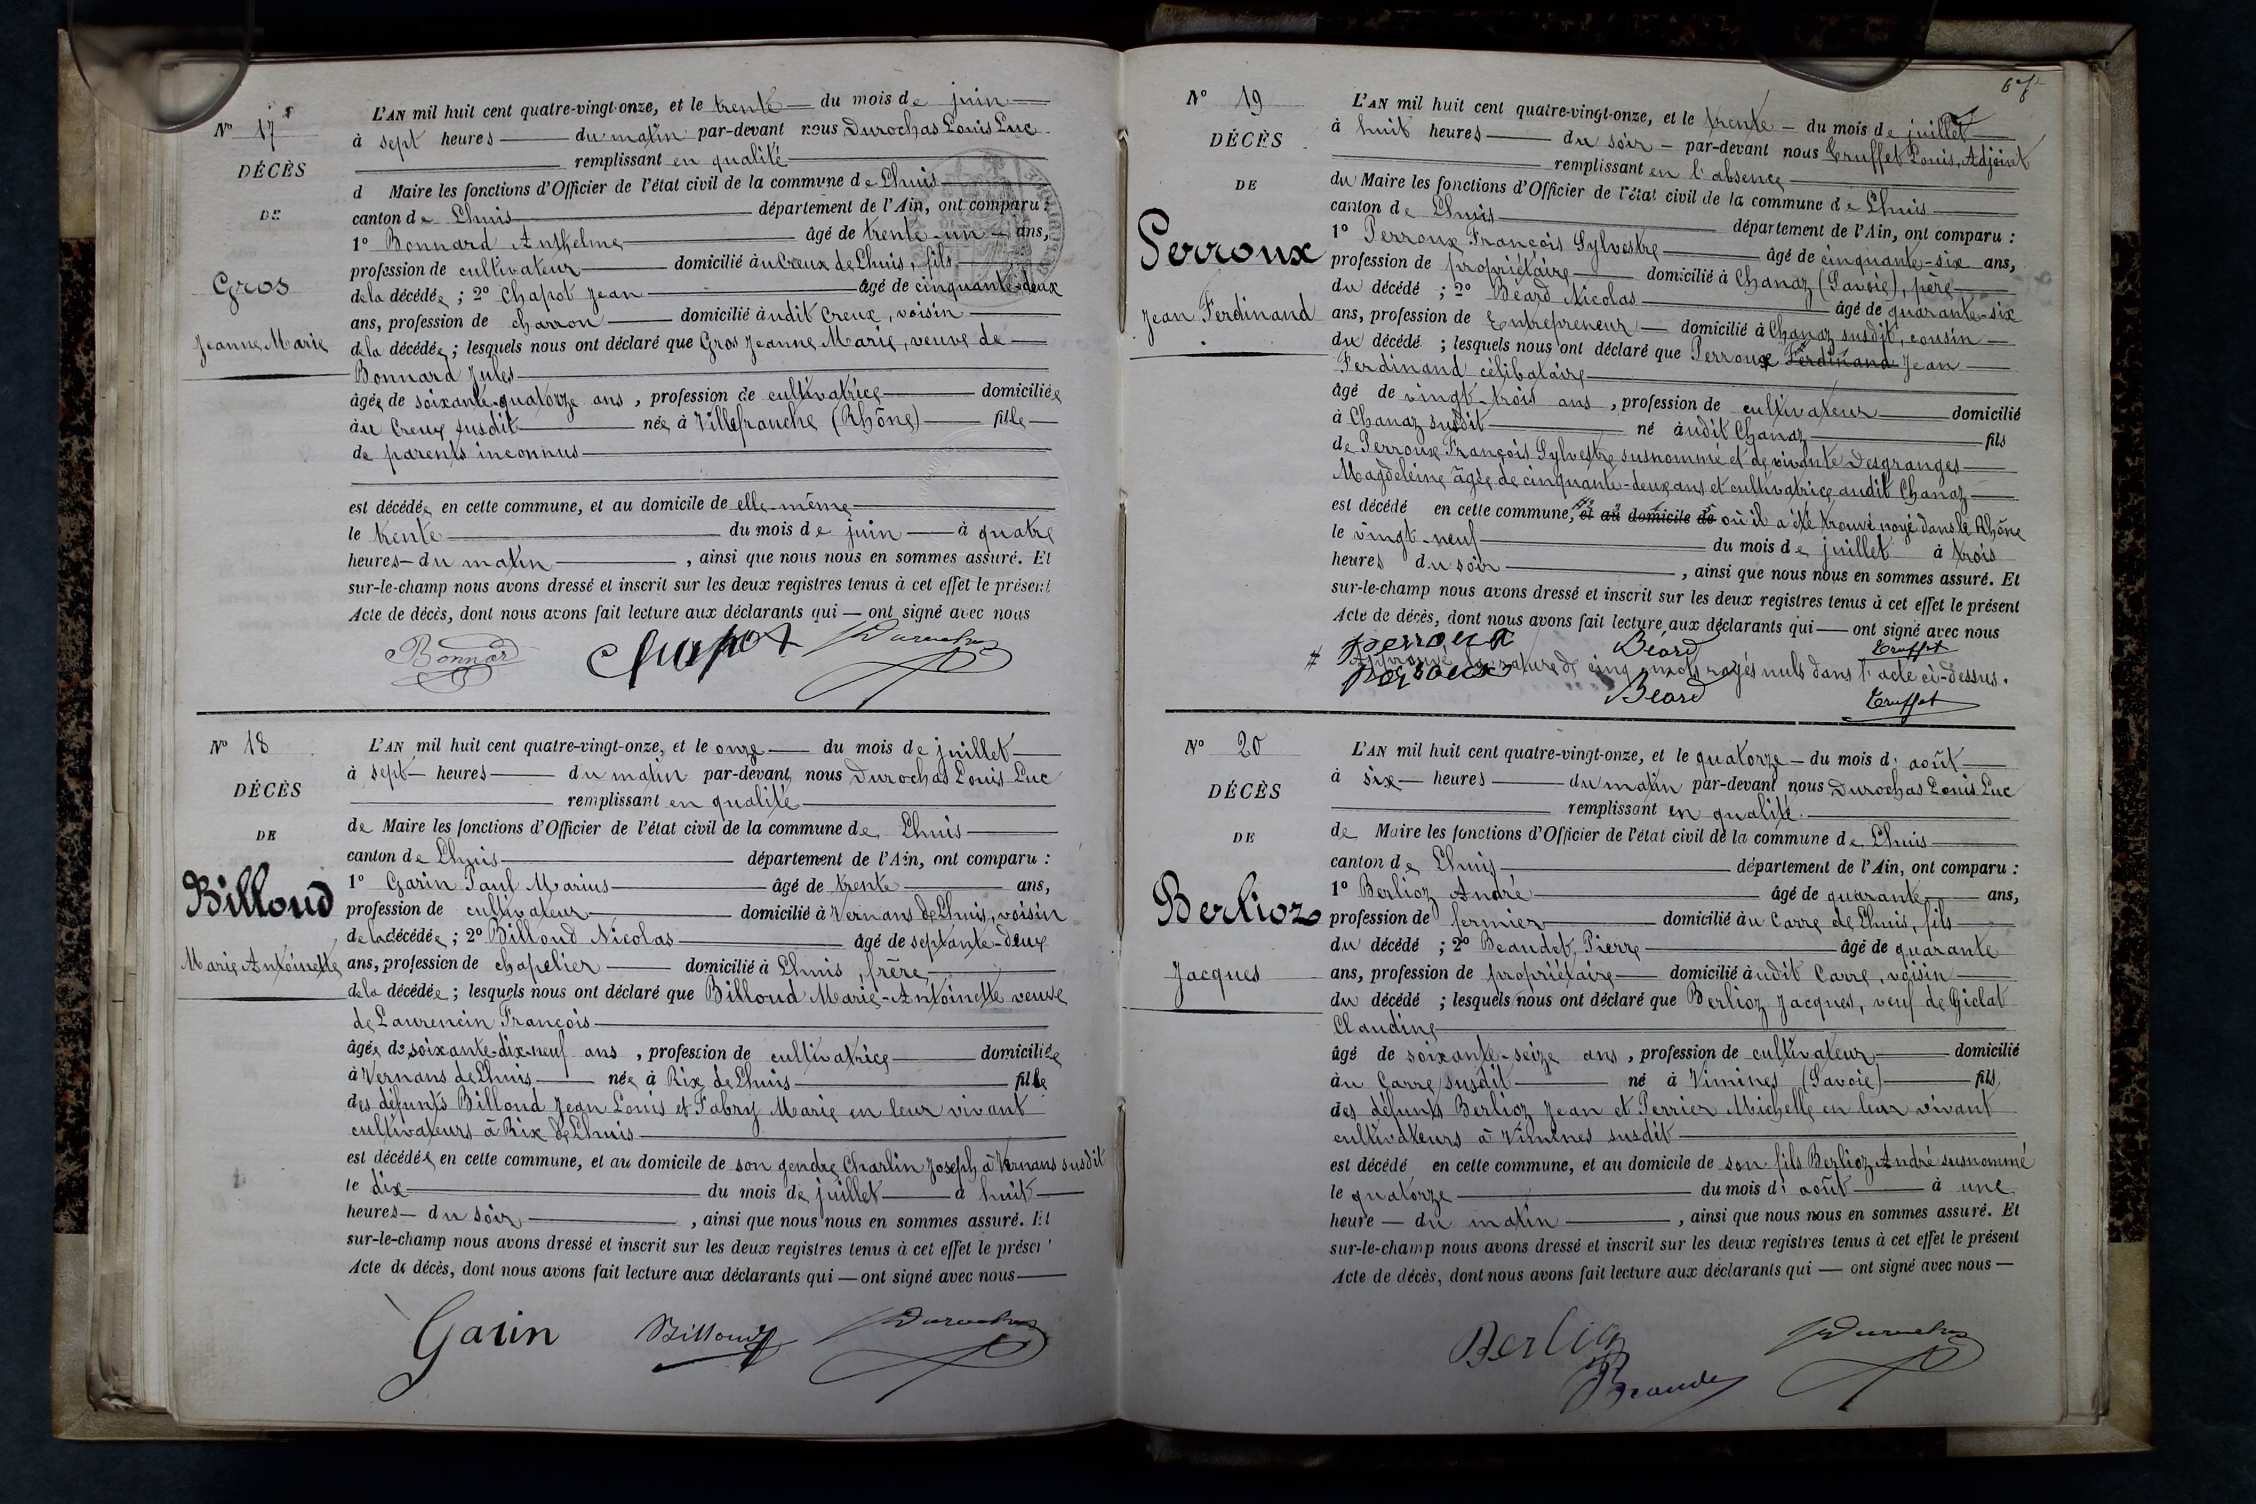 N° 17
DÉCÈS
DE
Gros
Jeanne Marie
L'AN mil huit cent quatre-vingt-onze, et le trente du mois de juin
à sept heures du matin par-devant nous Durochas Louis Luc
remplissant en qualité
d Maire les fonctions d'Officier de l'état civil de la commune de Lhuis
canton de Lhuis département de l'Ain, ont comparu :
1° Bonnard Anthelme âgé de trente-un ans,
profession de cultivateur domicilié au Creux de Lhuis, fils
de la décédée ; 2° Chapot Jean âgé de cinquante-deux
ans, profession de charron domicilié audit Creux, voisin
de la décédée ; lesquels nous ont déclaré que Gros Jeanne Marie, veuve de
Bonnard Jules
âgée de soixante-quatorze ans, profession de cultivatrice domiciliée
au Creux susdit née à Villefranche (Rhône) fille
de parents inconnus
est décédée en cette commune, et au domicile de elle-même
le trente du mois de juin à quatre
heures du matin, ainsi que nous nous en sommes assuré. Et
sur-le-champ nous avons dressé et inscrit sur les deux registres tenus à cet effet le présent
Acte de décès, dont nous avons fait lecture aux déclarants qui — ont signé avec nous
Bonnard Chapot Durochas
N° 18
DÉCÈS
DE
Billoud
Marie Antoinette
L'AN mil huit cent quatre-vingt-onze, et le onze du mois de juillet
à sept heures du matin par-devant nous Durochas Louis Luc
remplissant en qualité
de Maire les fonctions d'Officier de l'état civil de la commune de Lhuis
canton de Lhuis département de l'Ain, ont comparu :
1° Garin Paul Marius âgé de trente ans,
profession de cultivateur domicilié à Vernans de Lhuis, voisin
de la décédée ; 2° Billoud Nicolas âgé de septante-deux
ans, profession de chapelier domicilié à Lhuis, frère
de la décédée ; lesquels nous ont déclaré que Billoud Marie-Antoinette veuve
de Laurencin François
âgée de soixante-dix-neuf ans, profession de cultivatrice domiciliée
à Vernans de Lhuis née à Rix de Lhuis fille
des défunts Billoud Jean Louis et Fabry Marie en leur vivant
cultivateurs à Rix de Lhuis
est décédée en cette commune, et au domicile de son gendre Charlin Joseph à Vernans susdit
le dix du mois de juillet à huit
heures du soir, ainsi que nous nous en sommes assuré. Et
sur-le-champ nous avons dressé et inscrit sur les deux registres tenus à cet effet le présent
Acte de décès, dont nous avons fait lecture aux déclarants qui — ont signé avec nous
Garin Billoud Durochas
N° 19
DÉCÈS
DE
Perroux
Jean Ferdinand
L'AN mil huit cent quatre-vingt-onze, et le trente du mois de juillet
à huit heures du soir par-devant nous Truffet Louis, Adjoint
remplissant en l'absence
du Maire les fonctions d'Officier de l'état civil de la commune de Lhuis
canton de Lhuis département de l'Ain, ont comparu :
1° Perroux François Sylvestre âgé de cinquante-six ans,
profession de propriétaire domicilié à Chanaz (Savoie), père
du décédé ; 2° Béard Nicolas âgé de quarante-six
ans, profession de Entrepreneur domicilié à Chanaz susdit, cousin
du décédé ; lesquels nous ont déclaré que Perroux Ferdinand Jean
Ferdinand célibataire
âgé de vingt-trois ans, profession de cultivateur domicilié
à Chanaz susdit né audit Chanaz fils
de Perroux François Sylvestre susnommé et de vivante Desgranges
Magdeleine âgée de cinquante-deux ans et cultivatrice audit Chanaz
est décédé en cette commune, et au domicile de où il a été trouvé noyé dans le Rhône
le vingt-neuf du mois de juillet à trois
heures du soir, ainsi que nous nous en sommes assuré. Et
sur-le-champ nous avons dressé et inscrit sur les deux registres tenus à cet effet le présent
Acte de décès, dont nous avons fait lecture aux déclarants qui — ont signé avec nous
perroux Béard Truffet
# Approuvé la rature de cinq mots rayés nuls dans l'acte ci-dessus.
perroux Béard Truffet
N° 20
DÉCÈS
DE
Berlioz
Jacques
L'AN mil huit cent quatre-vingt-onze, et le quatorze du mois d'août
à six heures du matin par-devant nous Durochas Louis Luc
remplissant en qualité
de Maire les fonctions d'Officier de l'état civil de la commune de Lhuis
canton de Lhuis département de l'Ain, ont comparu :
1° Berlioz André âgé de quarante ans,
profession de fermier domicilié au Carre de Lhuis, fils
du décédé ; 2° Beaudet Pierre âgé de quarante
ans, profession de propriétaire domicilié audit Carre, voisin
du décédé ; lesquels nous ont déclaré que Berlioz Jacques, veuf de Giclat
Claudine
âgé de soixante-seize ans, profession de cultivateur domicilié
au Carre susdit né à Vimines (Savoie) fils
des défunts Berlioz Jean et Perrier Michelle en leur vivant
cultivateurs à Vimines susdit
est décédé en cette commune, et au domicile de son fils Berlioz André susnommé
le quatorze du mois d'août à une
heure du matin, ainsi que nous nous en sommes assuré. Et
sur-le-champ nous avons dressé et inscrit sur les deux registres tenus à cet effet le présent
Acte de décès, dont nous avons fait lecture aux déclarants qui — ont signé avec nous
Berlioz Durochas
Beaudet